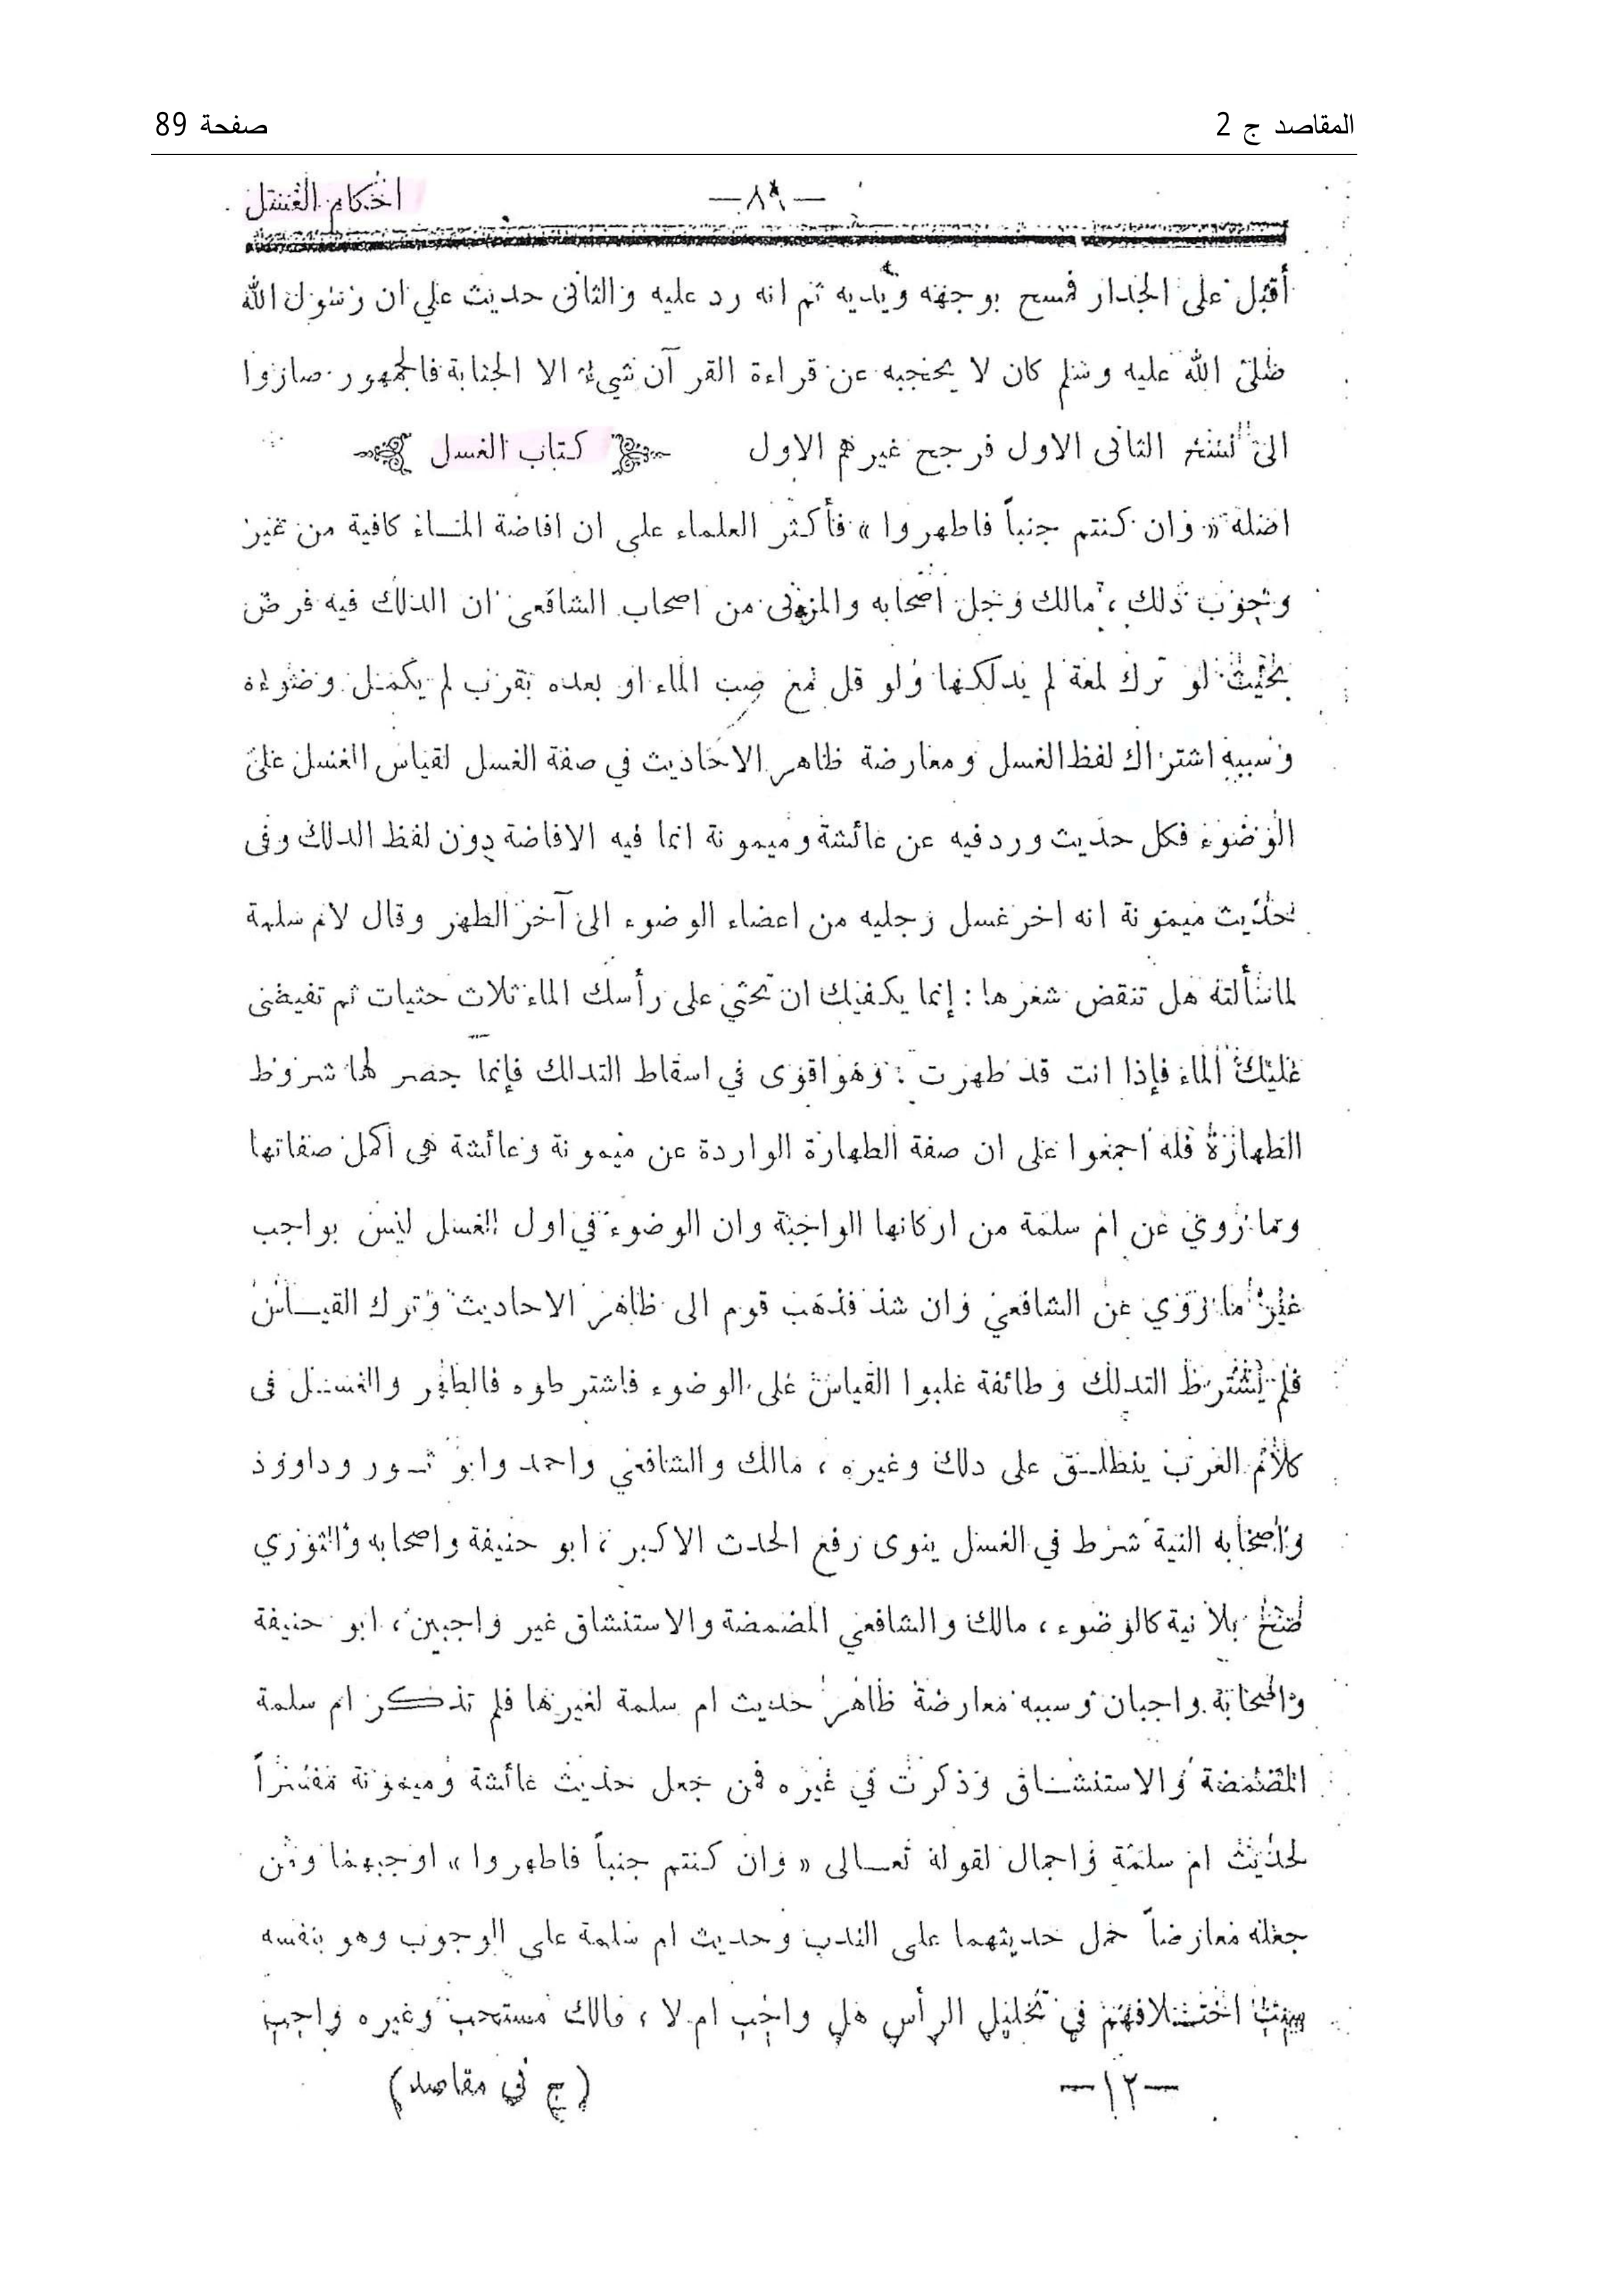 المقاصد ج 2
صفحة 89
احكام الغسل
—٨٩—
أقبل على الجدار فمسح بوجهه ويديه ثم انه رد عليه والثانى حديث علي ان رسول الله
صلى الله عليه وسلم كان لا يحجبه عن قراءة القرآن شيء الا الجنابة فالجمهور صاروا
الى نسخ الثانى الاول فرجح غيرهم الاول
كتاب الغسل
اصله « وان كنتم جنباً فاطهروا » فأكثر العلماء على ان افاضة المـاء كافية من غير
وجوب ذلك ، مالك وجل اصحابه والمزنى من اصحاب الشافعى ان الدلك فيه فرض
بحيث لو ترك لمعة لم يدلكها ولو قل مع صب الماء او بعده بقرب لم يكمل وضوءه
وسببه اشتراك لفظ الغسل ومعارضة ظاهر الاحاديث في صفة الغسل لقياس الغسل على
الوضوء فكل حديث ورد فيه عن عائشة وميمونة انما فيه الافاضة دون لفظ الدلك وفى
حديث ميمونة انه اخر غسل رجليه من اعضاء الوضوء الى آخر الطهر وقال لام سلمة
لما سألته هل تنقض شعرها : إنما يكفيك ان تحثي على رأسك الماء ثلاث حثيات ثم تفيضى
عليك الماء فإذا انت قد طهرت : وهو اقوى في اسقاط التدلك فإنما حصر لها شروط
الطهارة فله اجمعوا على ان صفة الطهارة الواردة عن ميمونة وعائشة هى اكمل صفاتها
وما روي عن ام سلمة من اركانها الواجبة وان الوضوء في اول الغسل ليس بواجب
غير ما روي عن الشافعي وان شذ فذهب قوم الى ظاهر الاحاديث وترك القيـاس
فلم يشترط التدلك وطائفة غلبوا القياس على الوضوء فاشترطوه فالطهر والغسل فى
كلام العرب ينطلـق على دلك وغيره ، مالك والشافعي واحمد وابو ثـور وداوود
واصحابه النية شرط في الغسل ينوى رفع الحدث الاكبر ، ابو حنيفة واصحابه والثوري
تصح بلا نية كالوضوء ، مالك والشافعي المضمضة والاستنشاق غير واجبين ، ابو حنيفة
واصحابه واجبان وسببه معارضة ظاهر حديث ام سلمة لغيرها فلم تذكر ام سلمة
المضمضة والاستنشـاق وذكرت في غيره فمن جعل حديث عائشة وميمونة مفسراً
لحديث ام سلمة واجمال لقوله تعـالى « وان كنتم جنباً فاطهروا » اوجبهما ومن
جعله معارضاً حمل حديثهما على الندب وحديث ام سلمة على الوجوب وهو بنفسه
سبب اختـلافهم في تخليل الرأس هل واجب ام لا ، مالك مستحب وغيره واجب
—١٢—
(ج نى مقاصد)